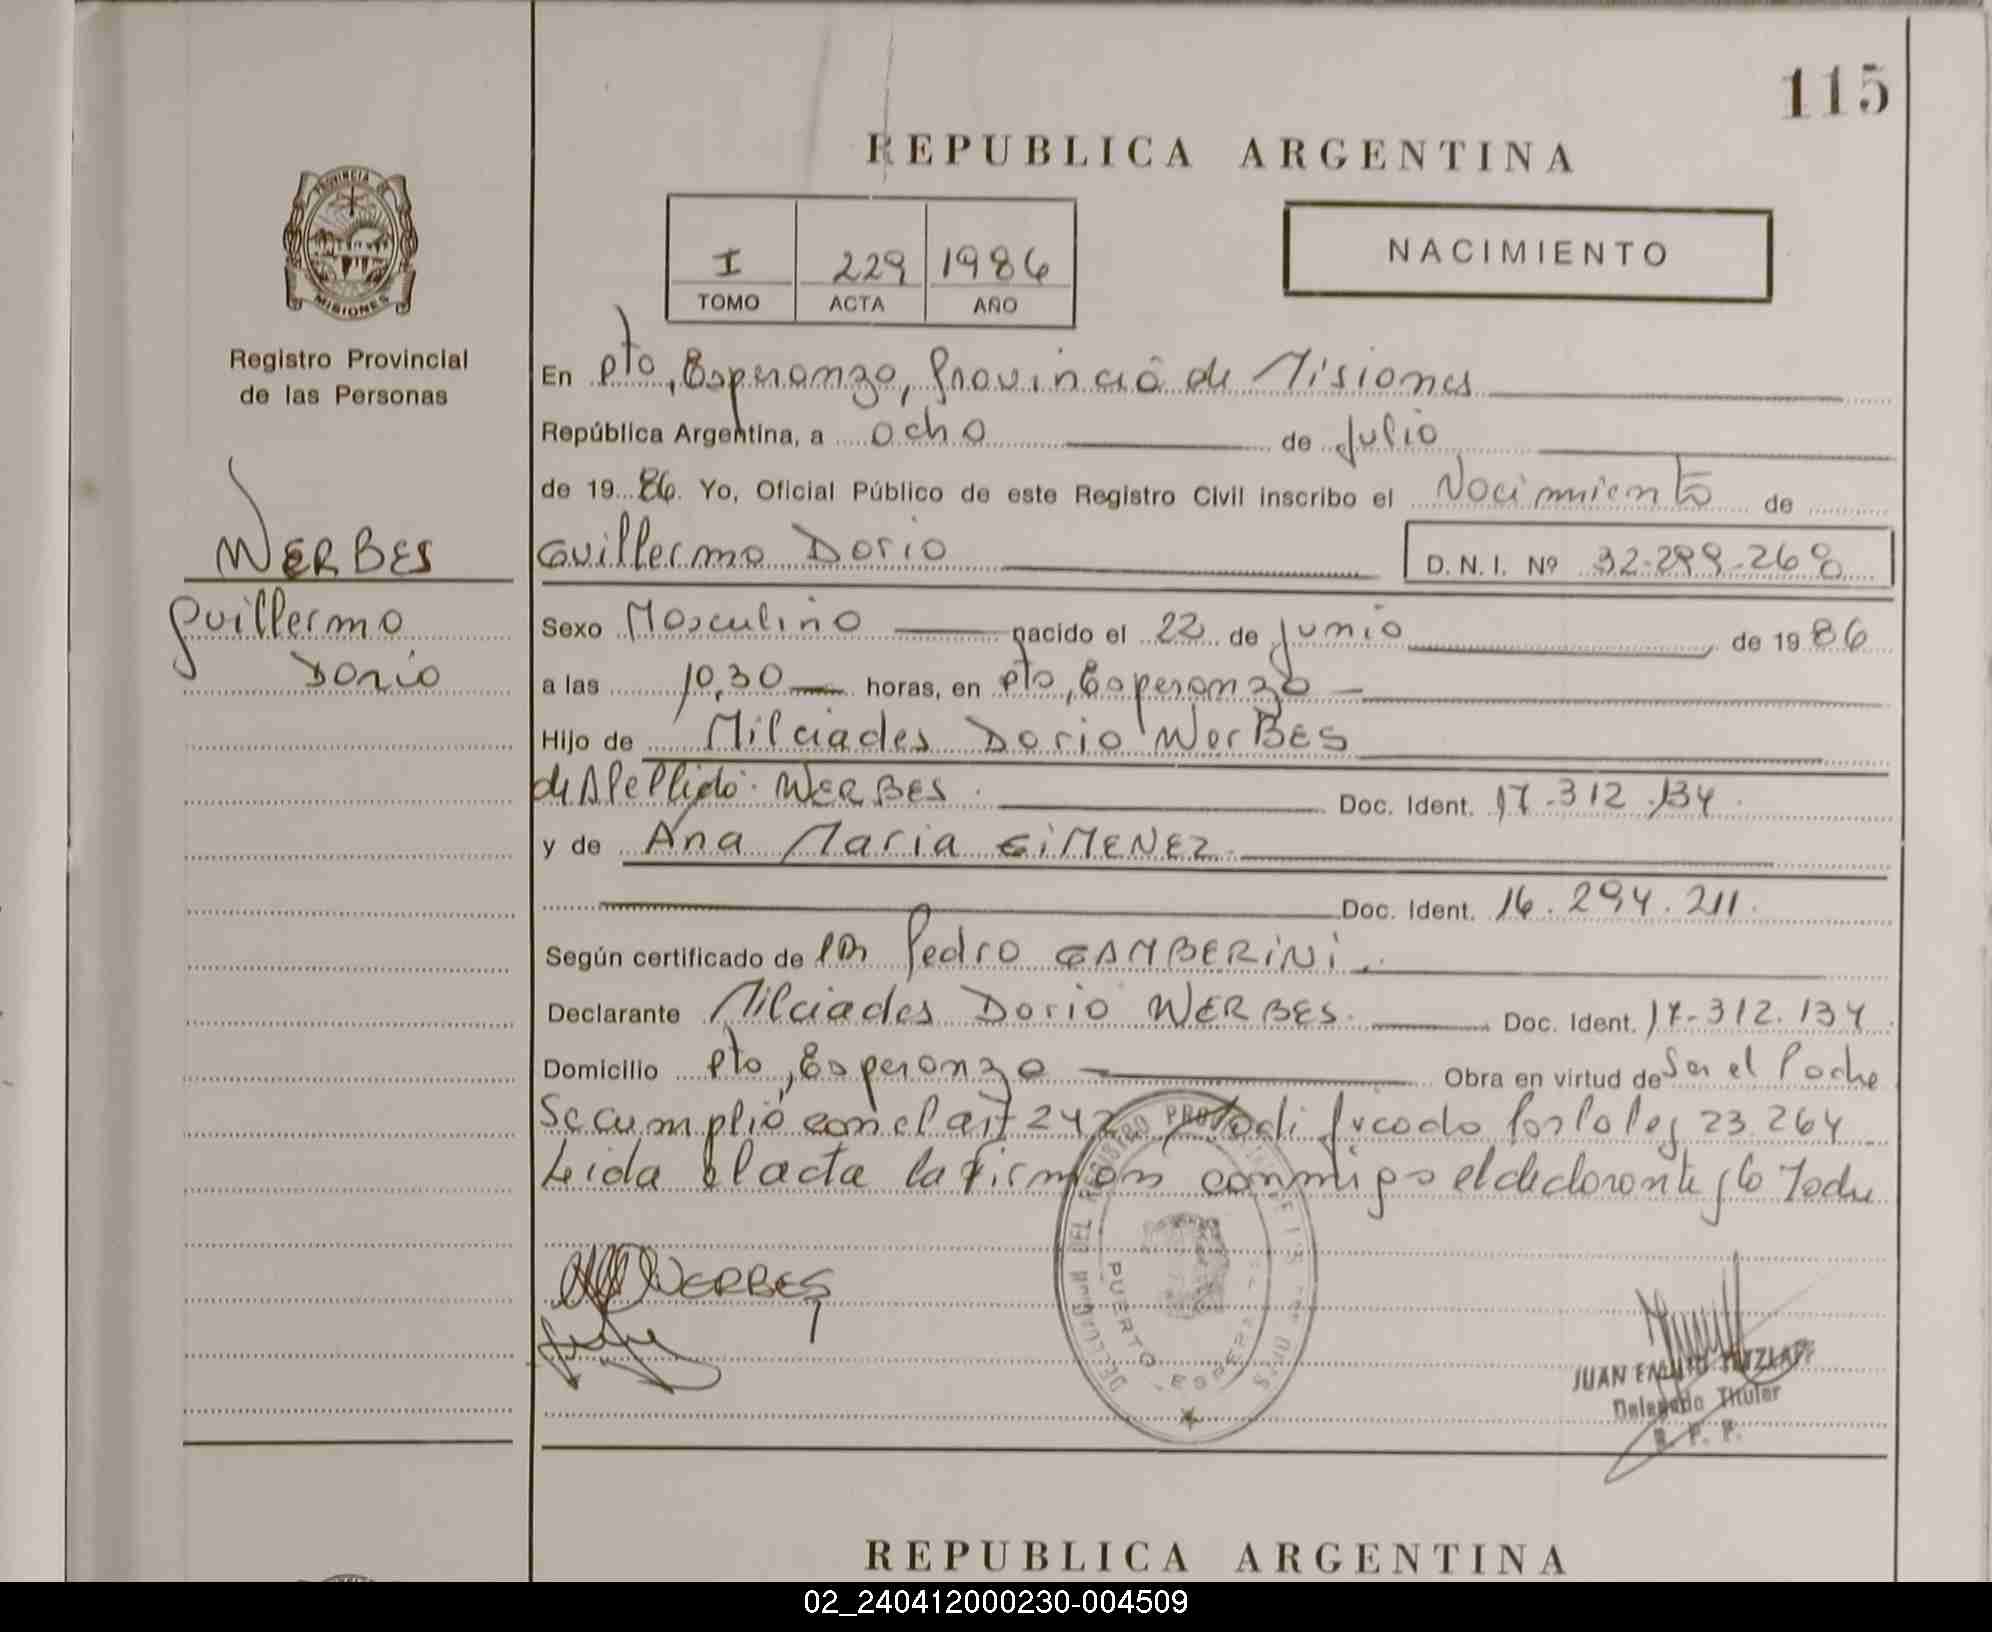 115
REPUBLICA ARGENTINA
PROVINCIA DE
MISIONES
Registro Provincial
de las Personas
I 229 1986
TOMO ACTA AÑO
NACIMIENTO
En Pto, Esperanza, Provincia de Misiones
República Argentina, a ocho de Julio
de 1986. Yo, Oficial Público de este Registro Civil inscribo el Nacimiento de
WERBES
Guillermo Dario
Guillermo Dario D. N. I. Nº 32.299.268
Sexo Masculino nacido el 22 de Junio de 1986
a las 10,30 horas, en Pto, Esperanza
Hijo de Milciades Dario WerBES
de Apellido: WERBES. Doc. Ident. 17.312.134.
y de Ana Maria GiMENEZ.
Doc. Ident. 16.294.211.
Según certificado de Pedro GAMBERiNi.
Declarante Milciades Dario WERBES. Doc. Ident. 17.312.134.
Domicilio Pto, Esperanza Obra en virtud de Ser el Padre
Se cumplió con el art 242 Modificado por la ley 23.264
Leida el acta la firman conmigo el declarante y la Madre
WERBES
PUERTO ESPERANZA
JUAN EMILIO
Delegado Titular
R. P. P.
REPUBLICA ARGENTINA
02_240412000230-004509